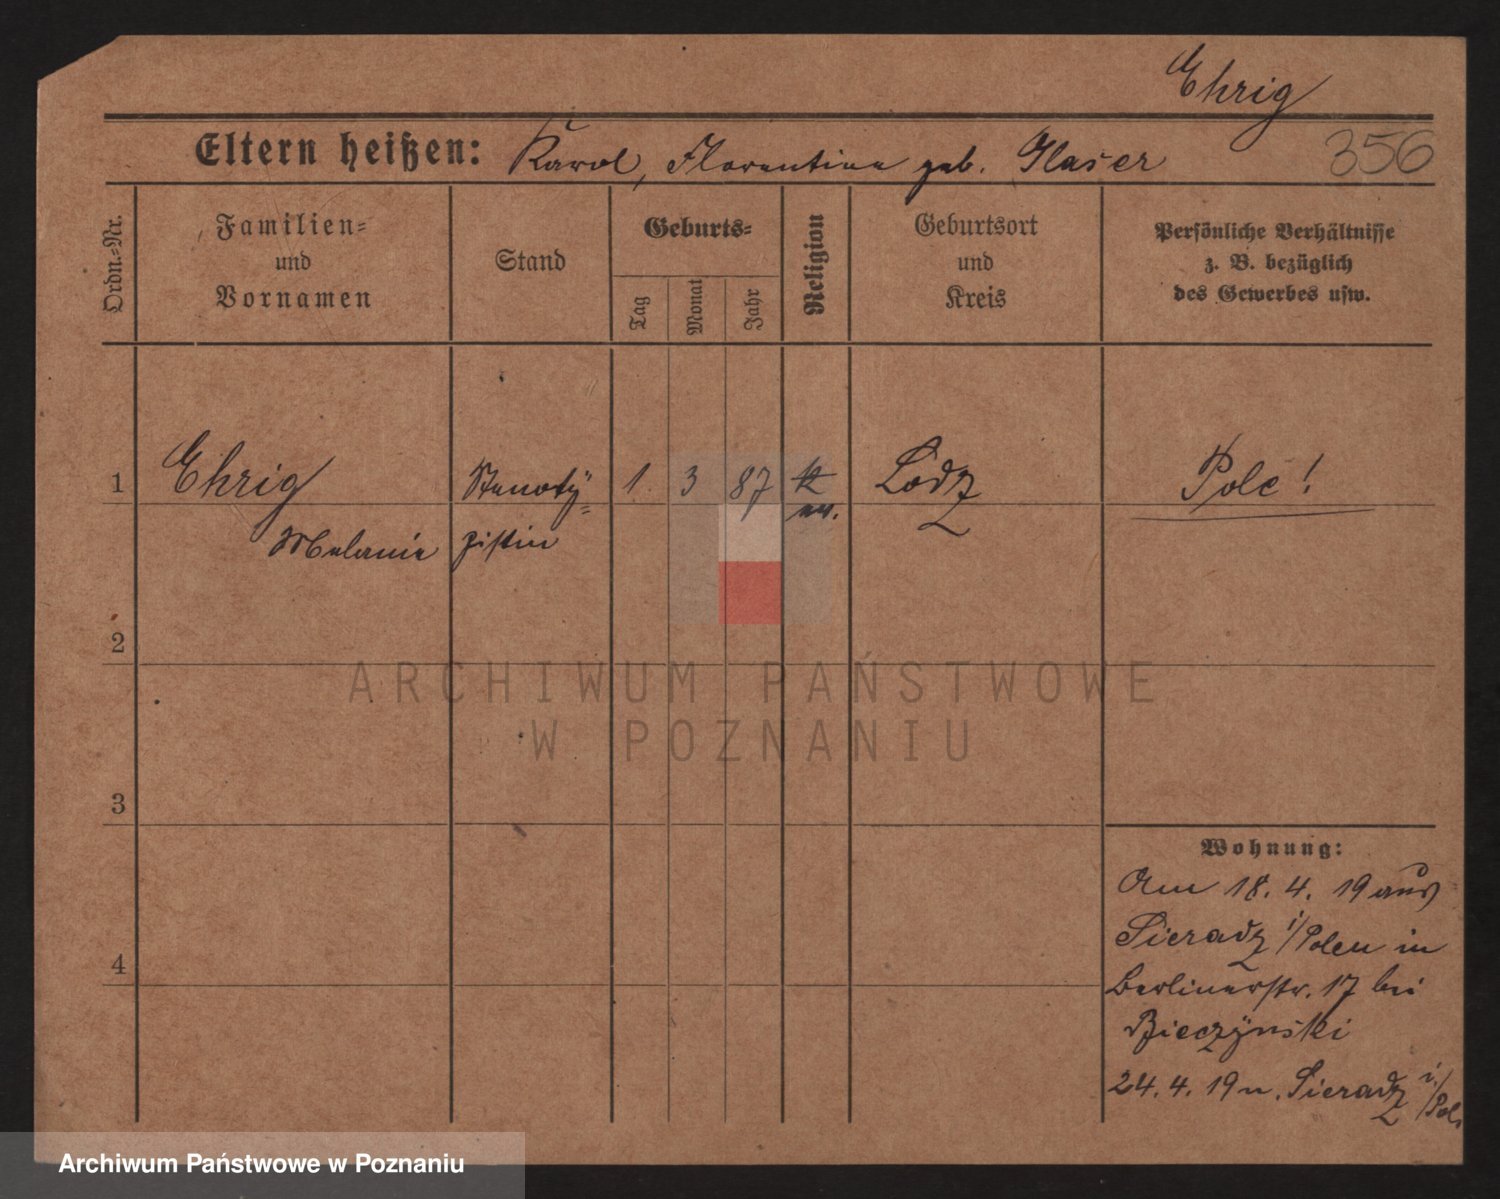 Ehrig
356
Eltern heißen: Karol, Florentine geb. Glaser
Ordn.-Nr.
Familien-
und
Vornamen
Stand
Geburts-
Tag
Monat
Jahr
Religion
Geburtsort
und
Kreis
Persönliche Verhältnisse
z. B. bezüglich
des Gewerbes usw.
1 Ehrig Stenoty- 1. 3 87 k Lodz Pole!
Melanie pistin ev.
2
3
4
Wohnung:
Am 18. 4. 19 aus
Sieradz i/Polen in
Berlinerstr. 17 bei
Bieczÿnski
24. 4. 19 n. Sieradz i/Pol.
ARCHIWUM PAŃSTWOWE
W POZNANIU
Archiwum Państwowe w Poznaniu